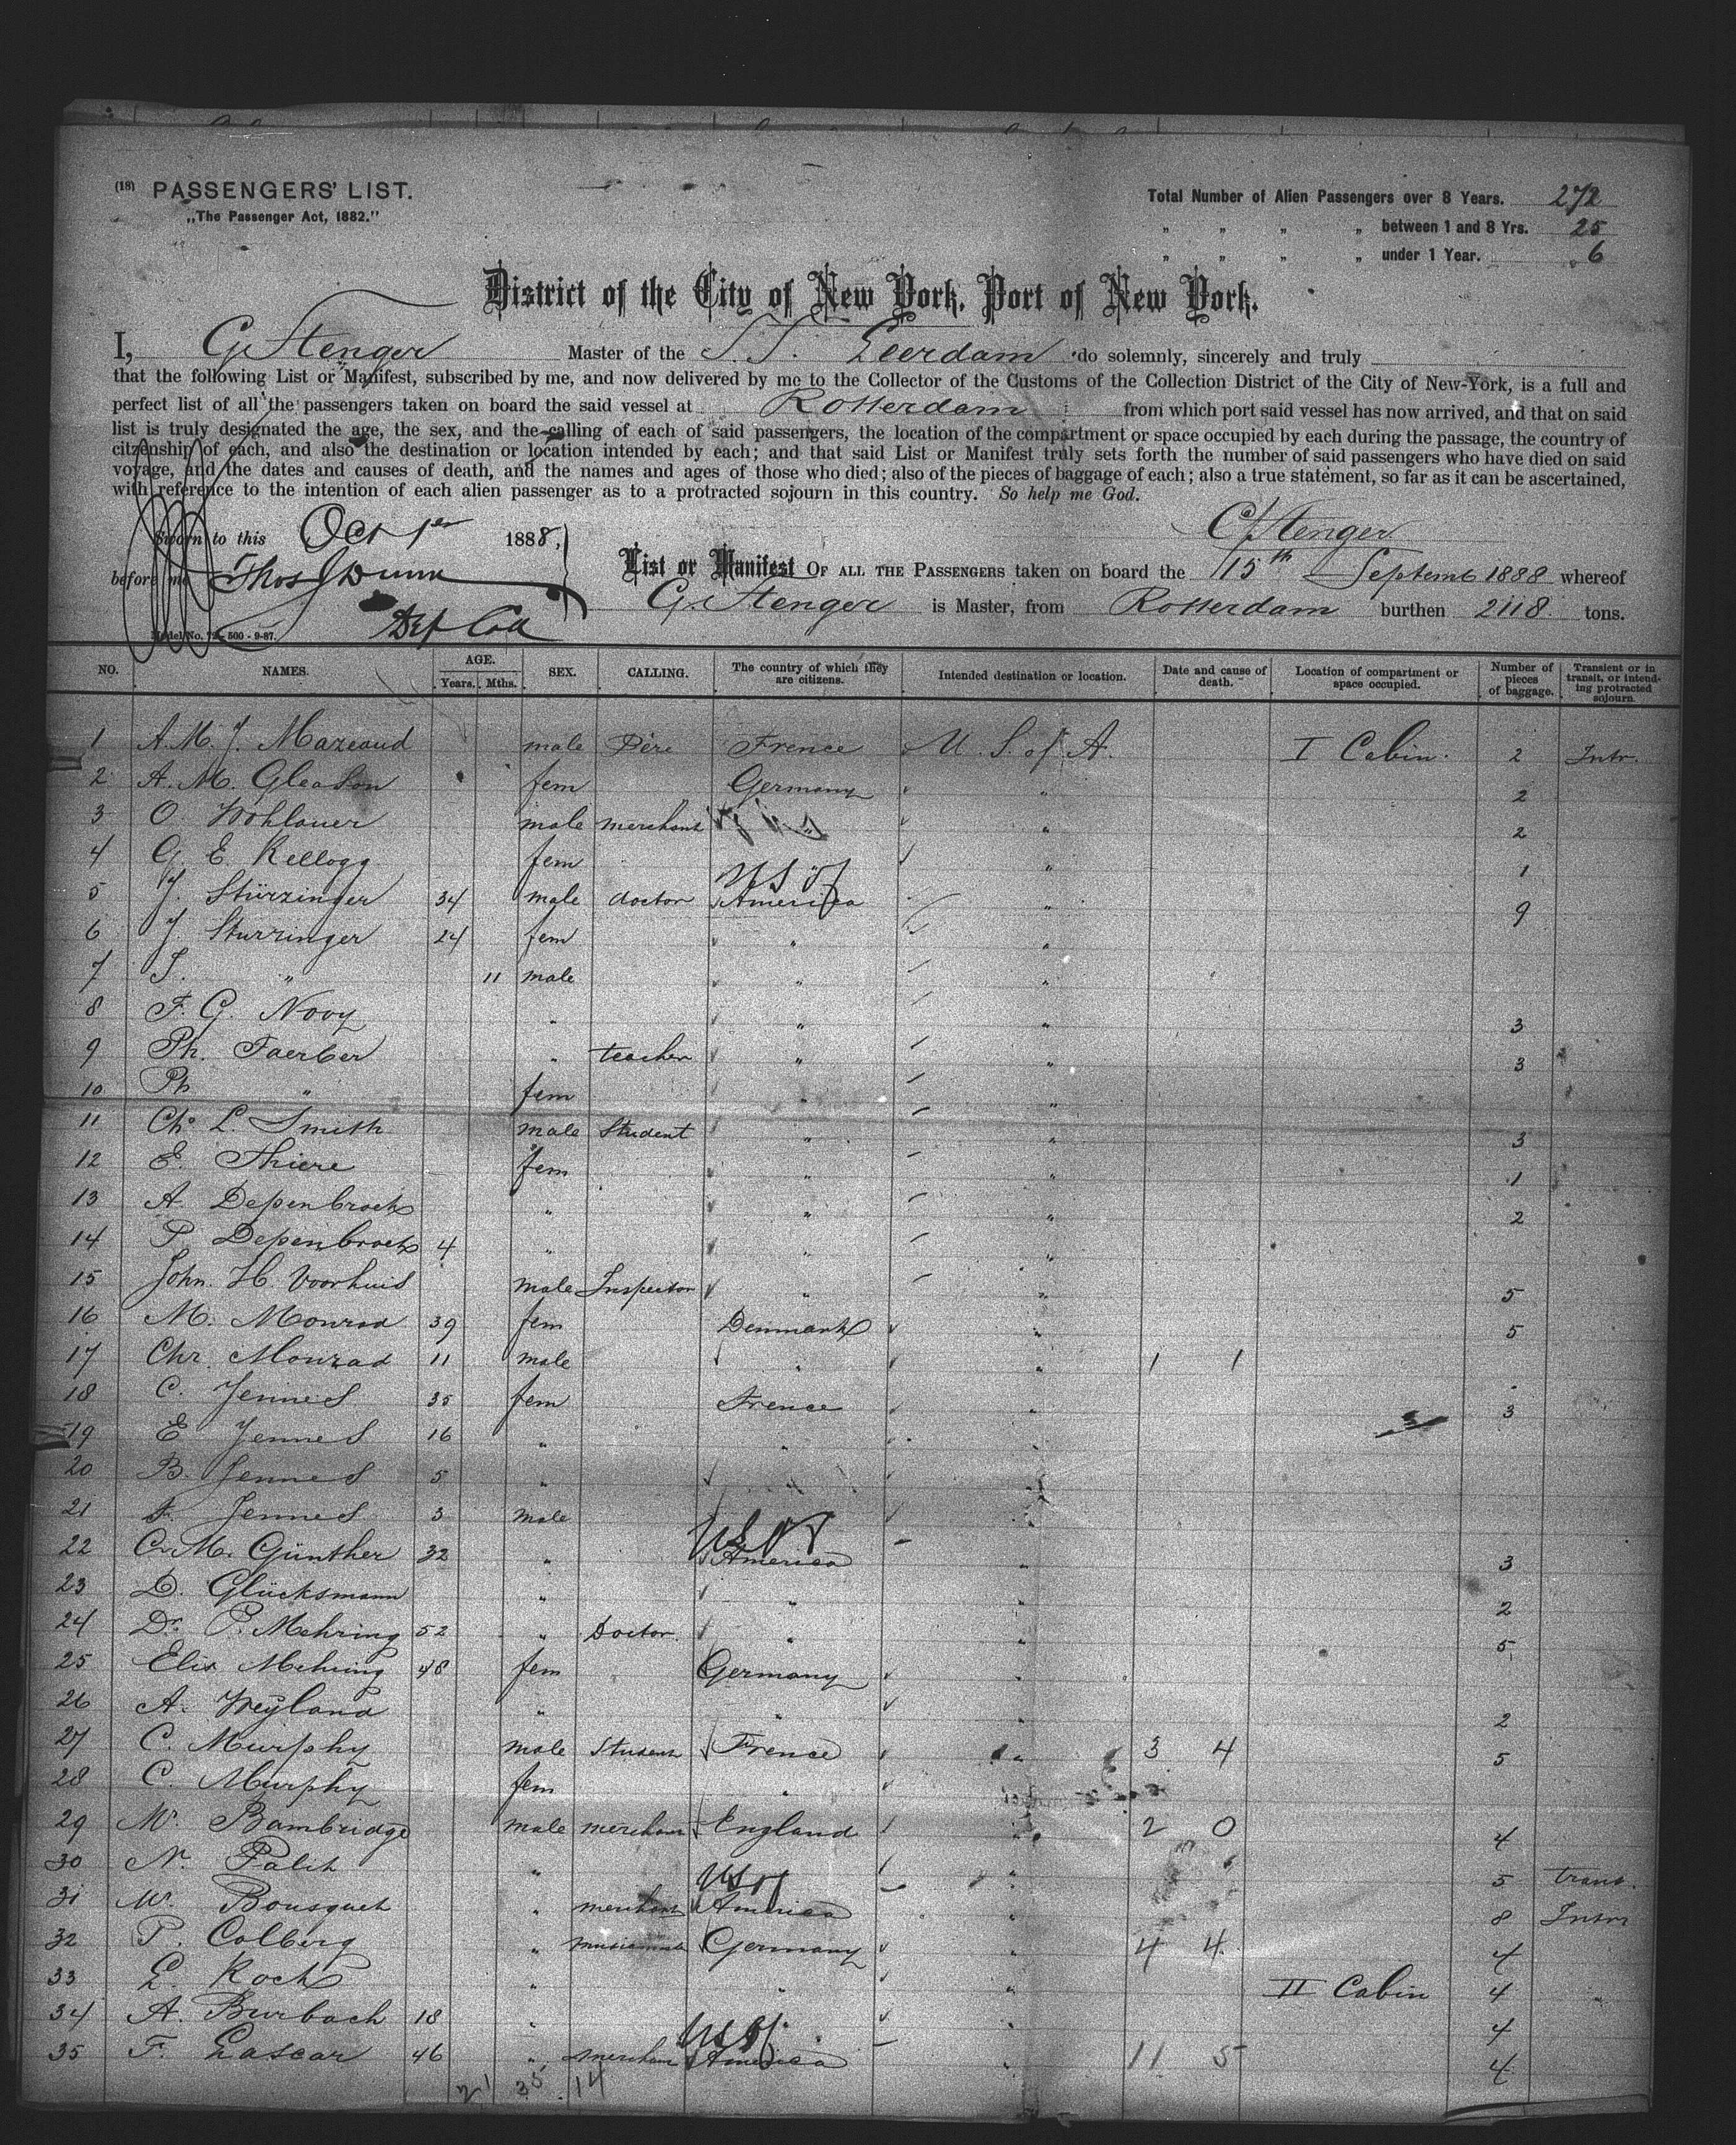 (18) PASSENGERS' LIST.
„The Passenger Act, 1882."
Total Number of Alien Passengers over 8 Years. 272
„ „ „ „ between 1 and 8 Yrs. 25
„ „ „ „ under 1 Year. 6
District of the City of New York, Port of New York.
I, G. Stenger Master of the S.S. Edam do solemnly, sincerely and truly
that the following List or Manifest, subscribed by me, and now delivered by me to the Collector of the Customs of the Collection District of the City of New-York, is a full and
perfect list of all the passengers taken on board the said vessel at Rotterdam from which port said vessel has now arrived, and that on said
list is truly designated the age, the sex, and the calling of each of said passengers, the location of the compartment or space occupied by each during the passage, the country of
citizenship of each, and also the destination or location intended by each; and that said List or Manifest truly sets forth the number of said passengers who have died on said
voyage, and the dates and causes of death, and the names and ages of those who died; also of the pieces of baggage of each; also a true statement, so far as it can be ascertained,
with reference to the intention of each alien passenger as to a protracted sojourn in this country. So help me God.
Sworn to this Oct 1er 1888,
G Stenger
before me Thos J Dunn
List or Manifest OF ALL THE PASSENGERS taken on board the 15th Septemb 1888 whereof
G. Stenger is Master, from Rotterdam burthen 2118 tons.
Dep Coll
Model No. 72 - 500 - 9-87.
NO. NAMES. AGE. Years. Mths. SEX. CALLING. The country of which they are citizens. Intended destination or location. Date and cause of death. Location of compartment or space occupied. Number of pieces of baggage. Transient or in transit, or intending protracted sojourn.
1 A. M. J. Mazeaud male Père Frence U. S. of A. I Cabin. 2 Intr.
2 A. M. Gleason fem Germany „ 2
3 O. Wohlauer male merchant „ 2
4 G. E. Kellogg fem „ 1
5 J. Stürzinger 34 male doctor US of America „ 9
6 J. Sturzinger 24 fem „ „
7 S. „ 11 male „ „
8 F. G. Novy „ „ „ 3
9 Ph. Faerber „ teacher „ „ 3
10 Ph „ fem „ „
11 Ch. L. Smith male Student „ „ 3
12 E. Thiere fem „ „ 1
13 A. Depenbrock „ „ „ 2
14 P. Depenbrock 4 „ „ „
15 John. H. Voorhuis male Inspector „ „ 5
16 M. Monrad 39 fem Denmark „ 5
17 Chr. Monrad 11 male „ „ 1 1
18 C. Jennes 35 fem Frence „ 3
19 E Jennes 16 „ „ „
20 B. Jennes 5 „ „ „
21 A. Jennes 3 male „
22 C. M. Günther 32 „ US of America „ 3
23 D. Glücksmann „ „ „ 2
24 Dr. P. Mehring 52 „ Doctor. „ „ 5
25 Elis Mehring 48 fem Germany „
26 A. Weyland „ „ „ 2
27 C. Murphy male Student Frence „ 3 4 5
28 C. Murphy fem „ „
29 W. Bambridge male merchant England „ 2 0 4
30 N. Palit „ „ 5 trans.
31 W. Bousquet „ merchant US of America „ 8 Intr
32 P. Colberg „ Germany „ 4 4 4
33 E. Koch „ „ „ II Cabin 4 „
34 A. Burbach 18 „ „ „ 4
35 F. Lascar 46 „ merchant US of America „ 11 5 4
21 35 . 14